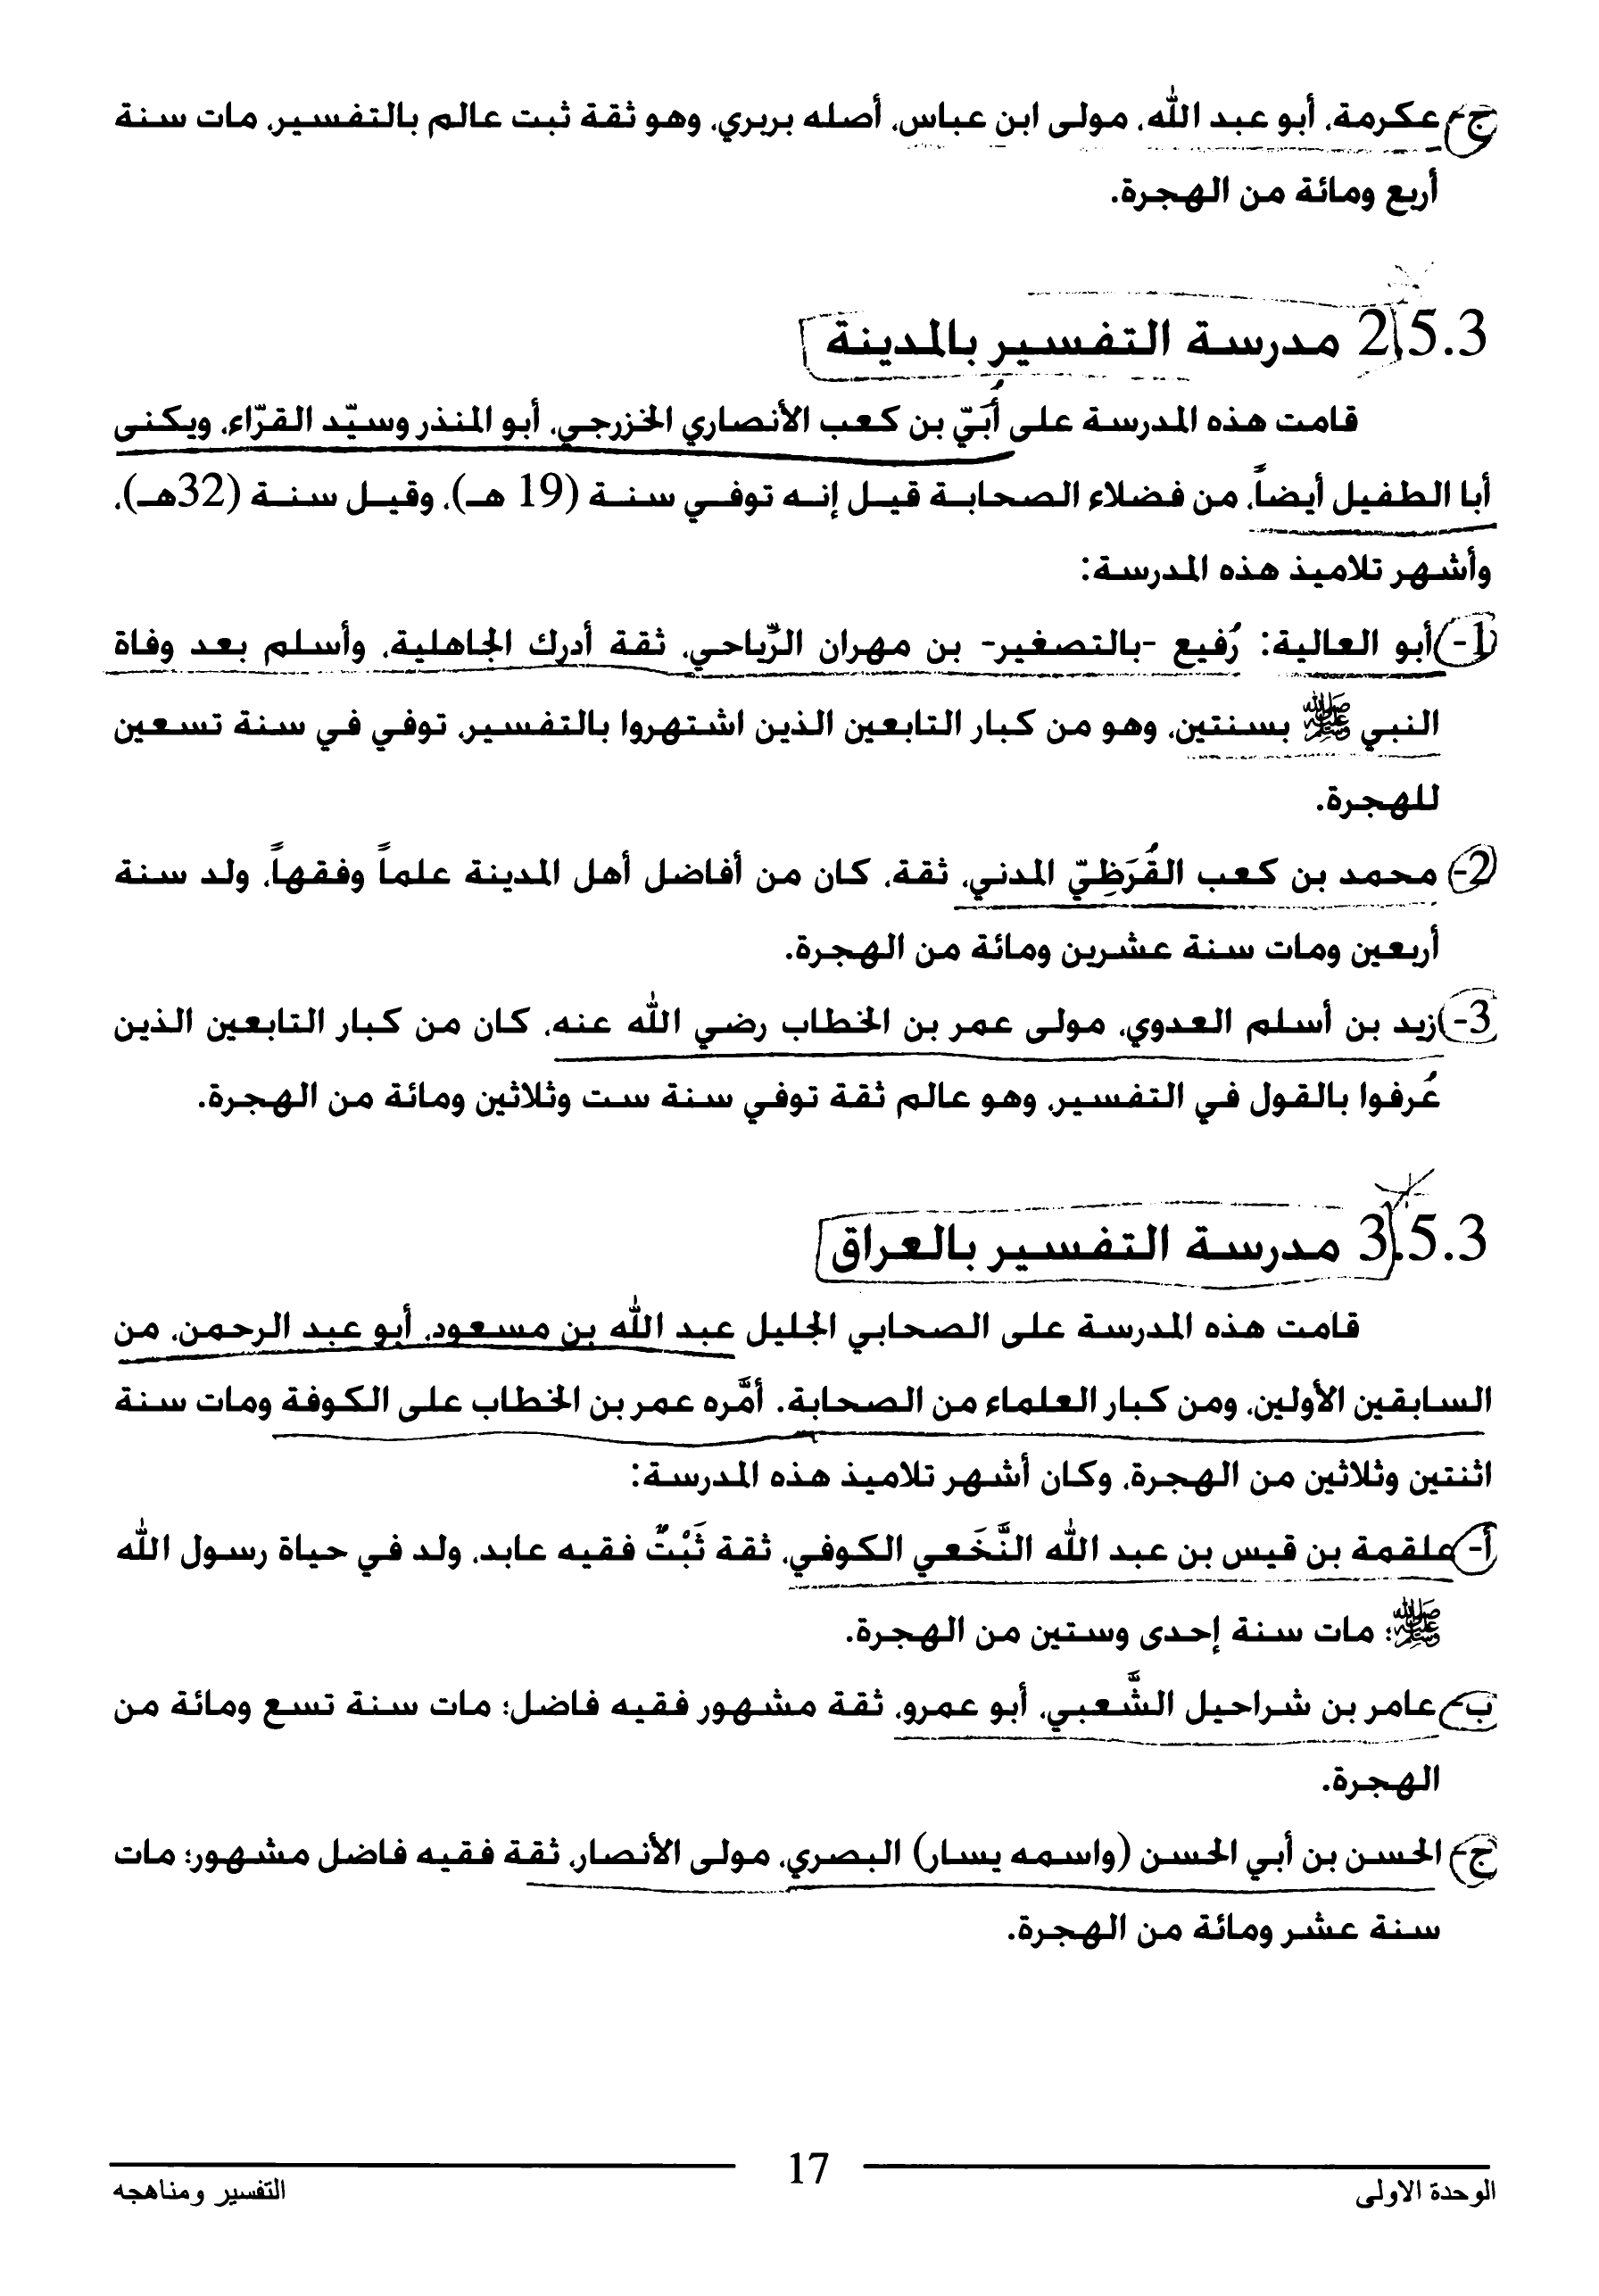 ج- عكرمة، أبو عبد الله، مولى ابن عباس، أصله بربري، وهو ثقة ثبت عالم بالتفسير، مات سنة
أربع ومائة من الهجرة.
2.5.3 مدرسة التفسير بالمدينة
قامت هذه المدرسة على أُبَيّ بن كعب الأنصاري الخزرجي، أبو المنذر وسيّد القرّاء، ويكنى
أبا الطفيل أيضاً، من فضلاء الصحابة قيل إنه توفي سنة (19 هـ)، وقيل سنة (32هـ)،
وأشهر تلاميذ هذه المدرسة:
1- أبو العالية: رُفيع -بالتصغير- بن مهران الرِّياحي، ثقة أدرك الجاهلية، وأسلم بعد وفاة
النبي ﷺ بسنتين، وهو من كبار التابعين الذين اشتهروا بالتفسير، توفي في سنة تسعين
للهجرة.
2- محمد بن كعب القُرَظِيّ المدني، ثقة، كان من أفاضل أهل المدينة علماً وفقهاً، ولد سنة
أربعين ومات سنة عشرين ومائة من الهجرة.
3- زيد بن أسلم العدوي، مولى عمر بن الخطاب رضي الله عنه، كان من كبار التابعين الذين
عُرفوا بالقول في التفسير، وهو عالم ثقة توفي سنة ست وثلاثين ومائة من الهجرة.
3.5.3 مدرسة التفسير بالعراق
قامت هذه المدرسة على الصحابي الجليل عبد الله بن مسعود، أبو عبد الرحمن، من
السابقين الأولين، ومن كبار العلماء من الصحابة، أمَّره عمر بن الخطاب على الكوفة ومات سنة
اثنتين وثلاثين من الهجرة، وكان أشهر تلاميذ هذه المدرسة:
أ- علقمة بن قيس بن عبد الله النَّخَعي الكوفي، ثقة ثَبْتٌ فقيه عابد، ولد في حياة رسول الله
ﷺ؛ مات سنة إحدى وستين من الهجرة.
ب- عامر بن شراحيل الشَّعبي، أبو عمرو، ثقة مشهور فقيه فاضل؛ مات سنة تسع ومائة من
الهجرة.
ج- الحسن بن أبي الحسن (واسمه يسار) البصري، مولى الأنصار، ثقة فقيه فاضل مشهور؛ مات
سنة عشر ومائة من الهجرة.
17
الوحدة الاولى
التفسير ومناهجه